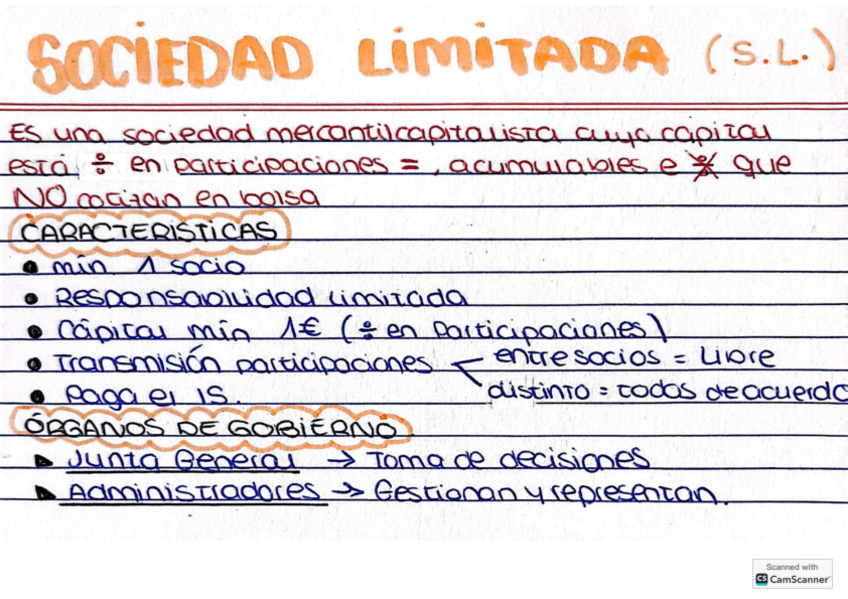 SOCIEDAD LIMITADA (S.L.)
Es una sociedad mercantil capitalista cuya capital
está ÷ en participaciones =, acumulables e que
NO cotizan en bolsa
CARACTERÍSTICAS
• mín 1 socio
• Responsabilidad limitada
• Cápital mín 1€ (÷ en participaciones)
• Transmisión participaciones < entre socios = Libre
distinto = todos de acuerdo
• Paga el IS.
ÓRGANOS DE GOBIERNO
▶ Junta General → Toma de decisiones
▶ Administradores → Gestionan y representan.
Scanned with
CS CamScanner